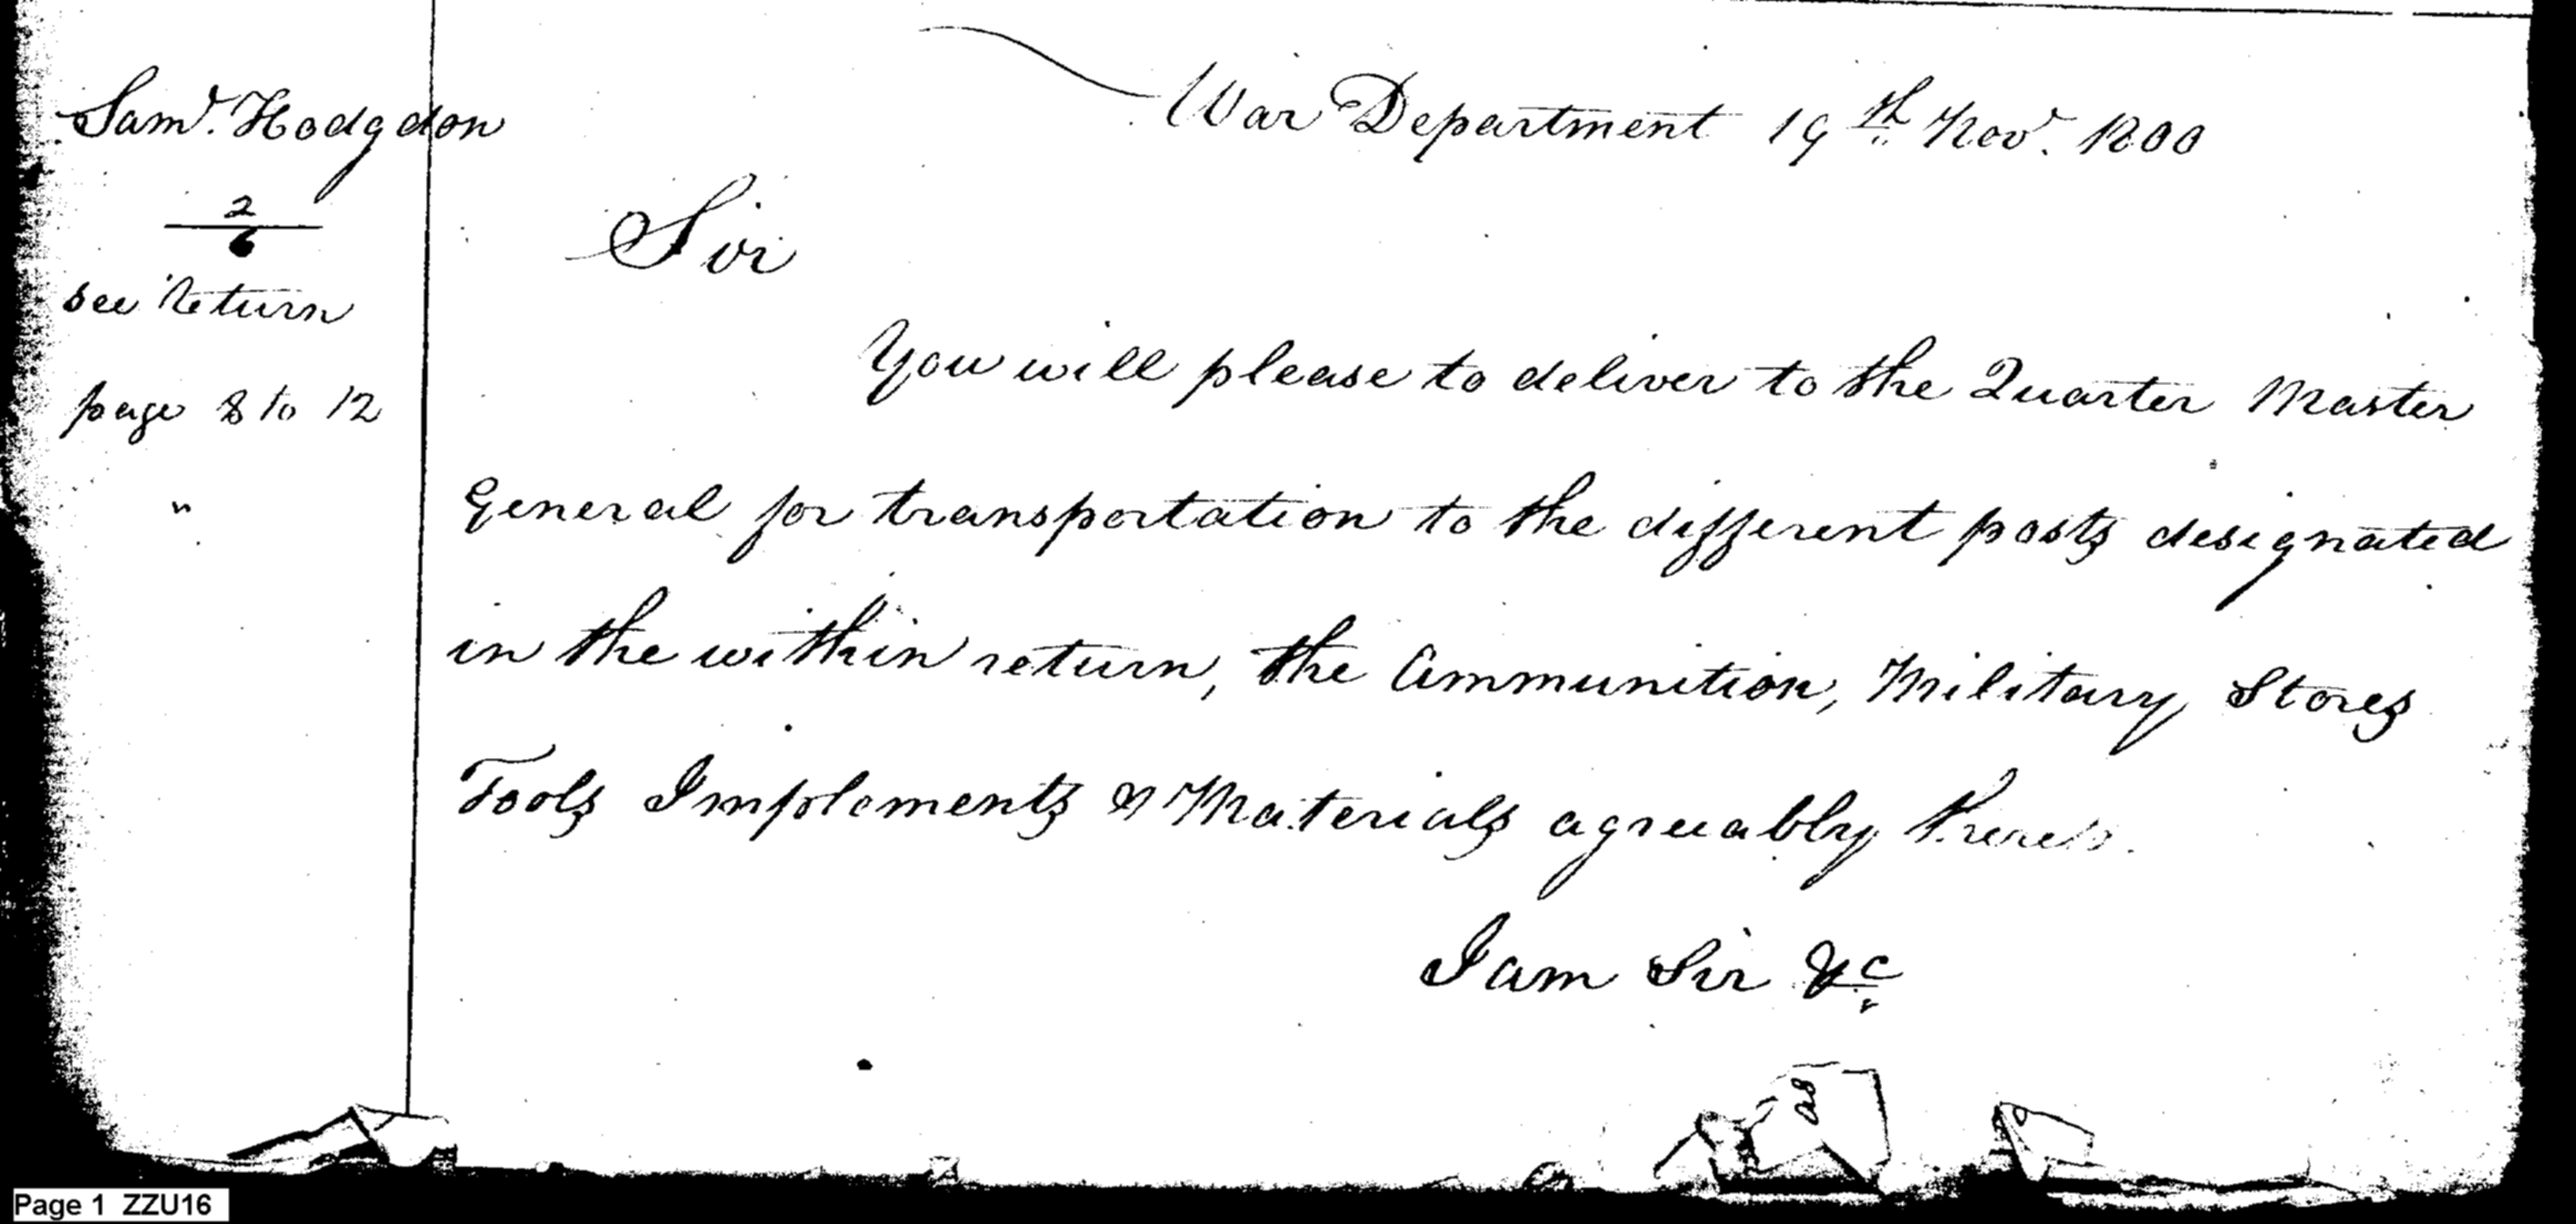 War Department 19th Novr. 1800
Saml. Hodgdon
2
6
see Return
page 8 to 12
"
Sir
You will please to deliver to the Quarter Master
General for transportation to the different posts designated
in the within return, the Ammunition, Military Stores
Tools Implements & Materials agreeably thereto.
I am Sir &c
as
Page 1 ZZU16